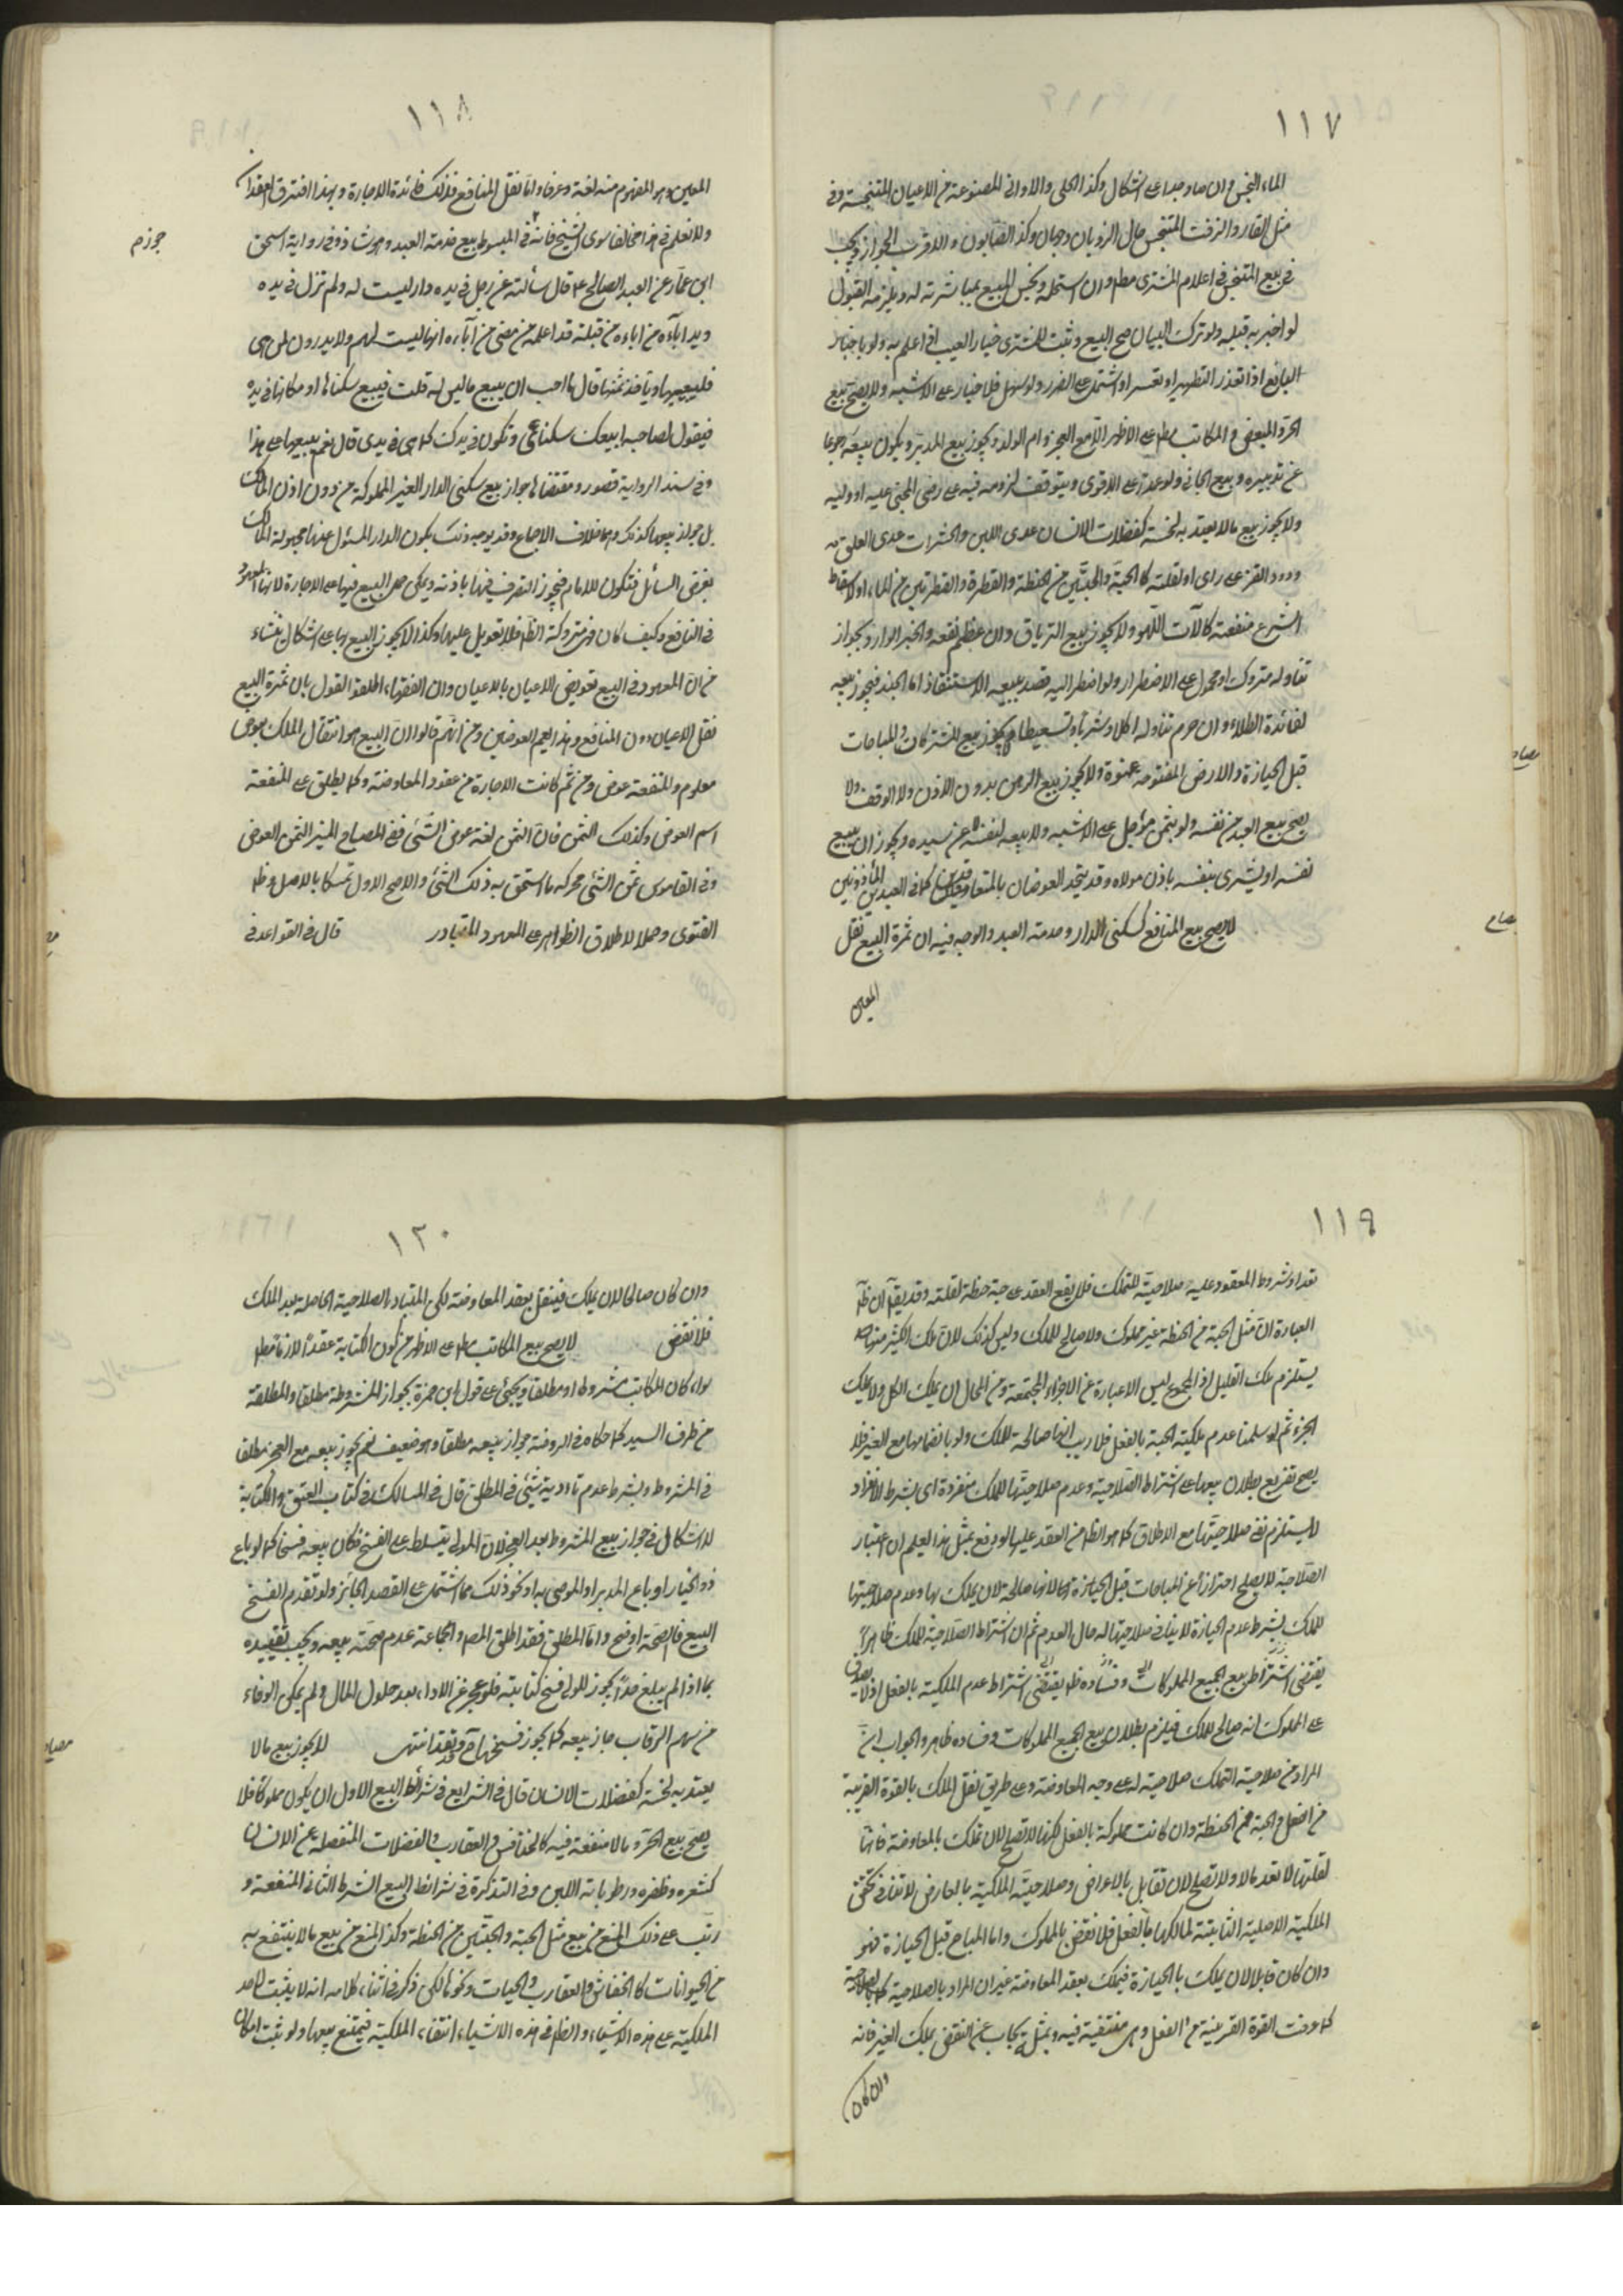 ١١٧
الماء النجس وان صار جمدا على اشكال وكذا الحلى والاوانى المصنوعة من الاعيان المتنجسة وفى
مثل القار والزفت المتنجس حال الذوبان وجهان وكذا الصابون والاقرب الجواز ويجب
فى بيع المتنجس اعلام المشترى مطم وان استحله
لو اخبر به قبله ولو ترك البيان صح البيع وثبت للمشترى خيار العيب اذا علم به ولو باخبار
البايع اذا تعذر التطهير او تعسر او اشتمل على الضرر ولو سهل فلا خيار على الاشبه ولا يصح بيع
الحر والمبعض والمكاتب مطم على الاظهر الا مع العجز وام الولد ويجوز بيع المدبر ويكون بيعه رجوعا
عن تدبيره وبيع الجانى ولو عمدا على الاقوى ويتوقف لزومه فيه على رضى المجنى عليه او وليه
ولا يجوز بيع مالا يعتد به لخسة كفضلات الانسان عدى اللبن والحشرات عدى العلق
ودود القز على راى او لقلته كالحبة والحبتين من الحنطة والقطرة والقطرتين من الماء او لاسقاط
الشرع منفعته كآلات اللهو ولا يجوز بيع الترياق وان عظم نفعه والخبر الوارد بجواز
تناوله متروك او محمول على الاضطرار ولو اضطر اليه قصد ببيعه الاستنقاذ اما الجند فيجوز بيعه
لفائدة الطلاء وان حرم تناوله اكلا وشربا وتسعيطا ولا يجوز بيع المشتركات والمباحات
قبل الحيازة والارض المفتوحة عنوة ولا يجوز بيع الرهن بدون الاذن ولا الوقف ولا
يصح بيع العبد من نفسه ولو بثمن مؤجل على الاشبه ولا بيعه لنفسه عن سيده ويجوز ان يبيع
نفسه او يشترى بنفسه باذن مولاه وقد يتحد العوضان بالمتعاوضين كما فى العبدين المأذونين
لا يصح بيع المنافع كسكنى الدار وخدمة العبد والوجه فيه ان ثمرة البيع نقل
المعين
١١٨
المعين وهو المفهوم منه لغة وعرفا واما نقل المنافع فذلك فائدة الاجارة وبهذا افترق العقدان
ولا نعلم فى هذا مخالفا سوى الشيخ فانه فى المبسوط بيع خدمة العبد وهو شاذ وفى رواية اسحق
ابن عمار عن العبد الصالح ع قال سألته عن رجل فى يده دار ليست له ولم تزل فى يده
ويد ابآئه من اباءه من قبله قد اعلمه من مضى من آبآءه انها ليست لهم ولا يدرون لمن هى
فليبيعها وياخذ ثمنها قال ما احب ان يبيع ما ليس له قلت فيبيع سكناها او مكانها فى يده
فيقول لصاحبه ابيعك سكناى وتكون فى يدك كما هى فى يدى قال نعم يبيعها على هذا
وفى سند الرواية قصور ومقتضاها جواز بيع سكنى الدار الغير المملوكة من دون اذن المالك
بل جواز بيعها كذلك وهما خلاف الاجماع وقد يوجه ذلك بكون الدار المسئول عنها مجهولة المالك
بفرض السائل فتكون للامام فيجوز التصرف فيها باذنه ويمكن حمل البيع فيها على الاجارة لانها المعهود
فى المنافع وكيف كان فهى متروكة الظ فلا تعويل عليها وكذا لا يجوز البيع بها على اشكال ينشاء
من ان المعهود فى البيع تعويض الاعيان بالاعيان وان الفقهاء اطلقوا القول بان ثمرة البيع
نقل الاعيان دون المنافع وهذا يعم العوضين ومن انهم قالوا ان البيع هو انتقال الملك بعوض
معلوم والمنفعة عوض ومن ثم كانت الاجارة من عقود المعاوضة وكما يطلق على المنفعة
اسم العوض وكذلك الثمن فان الثمن لغة عوض الشئ ففى المصباح المنير الثمن العوض
وفى القاموس ثمن الشئ محركه ما استحق به ذلك الشئ والاصح الاول تمسكا بالاصل وظ
الفتوى وحملا لاطلاق الظواهر على المعهود المتبادر قال فى القواعد فى
١١٩
تعداد شروط المعقود عليه صلاحية للتملك فلا يقع العقد على حبة حنطة لقلته وقد يق ان ظ
العبارة ان مثل الحبة من الحنطة غير مملوك ولا صالح للملك وليس كذلك لان ملك الكثير منها
يستلزم ملك القليل اذ المجموع ليس الا عبارة عن الاجزاء المجتمعة ومن المحال ان يملك الكل ولا يملك
الجزء ثم لو سلمنا عدم ملكية الحبة بالفعل فلا ريب انها صالحة للملك ولو بانضمامها مع الغير فلا
يصح تفريع بطلان بيعها على اشتراط الصلاحية وعدم صلاحيتها للملك منفردة اى بشرط الانفراد
لا يستلزم نفى صلاحيتها مع الاطلاق كما هو الظ من العقد عليها لو وقع بمثل هذا يعلم ان اعتبار
الصلاحية لا يصلح احترازا عن المباحات قبل الحيازة لانها صالحة لان يملك بها وعدم صلاحيتها
للملك بشرط عدم الحيازة لا ينافى صلاحيتها له حال العدم ثم ان اشتراط الصلاحية للملك ظاهرا
يقتضى اشتراط بيع الجميع المملوكات وفساده ظ يقتضى اشتراط عدم الملكية بالفعل اذ لا يصدق
على المملوك انه صالح للملك فيلزم بطلان بيع الجميع المملوكات وفساده ظاهر والجواب ان
المراد من صلاحية التملك صلاحية له على وجه المعاوضة وعلى طريق نقل الملك بالقوة القريبة
من الفعل والحبة من الحنطة وان كانت مملوكة بالفعل لكنها لا تصلح لان تملك بالمعاوضة فانها
لقلتها لا تعد مالا ولا تصلح لان تقابل بالاعواض وصلاحية الملكية بالعارض لا تنافى تحقق
الملكية الاصلية الثابتة لمالكها بالفعل فلا نقض بالمملوك واما المباح قبل الحيازة فهو
وان كان قابلا لان يملك بالحيازة فيملك بعقد المعاوضة غير ان المراد بالصلاحية
كما عرفت القوة القريبة من الفعل وهى منتفية فيه وبمثله يجاب عن النقض بملك الغير فانه
وان كان
١٢٠
وان كان صالحا لان يملك فينتقل بعقد المعاوضة لكن المتبادر الصلاحية الحاصلة بيد المالك
فلا نقض لا يصح بيع المكاتب مطم على الاظهر من كون الكتابة عقدا لازما مطم
سواء كان المكاتب مشروطا او مطلقا ويجئ على قول ابن حمزة بجواز المشروطة مطلقا والمطلقة
من طرف السيد كما حكاه فى الروضة جواز بيعه مطلقا وهو ضعيف نعم يجوز بيعه مع العجز مطلقا
فى المشروط وبشرط عدم تادية شئ فى المطلق قال فى المسالك فى كتاب العتق والكتابة
لا اشكال فى جواز بيع المشروط بعد العجز لان المولى يتسلط على الفسخ فكان بيعه فسخا كما لو باع
ذو الخيار او باع المدبر او الموصى به او نحو ذلك مما اشتمل على القصد الجائز ولو تقدم الفسخ
البيع فالصحة اوضح واما المطلق فقد اطلق المص والجماعة عدم صحة بيعه ويجب تقييده
بما اذا لم يبلغ حدا يجوز للمولى فسخ كتابته فلو عجز عن الاداء بعد حلول المال ولم يمكن الوفاء
من سهم الرقاب جاز بيعه كما يجوز فسخها انتهى لا يجوز بيع مالا
يعتد به لخسة كفضلات الانسان قال فى الشرايع فى شرائط البيع الاول ان يكون مملوكا فلا
يصح بيع الحر ومالا منفعة فيه كالخنافس والعقارب والفضلات المنفصلة عن الانسان
كشعره وظفره ورطوباته اللبن وفى التذكرة فى شرائط البيع الشرط الثانى المنفعة و
رتب على ذلك المنع من بيع مثل الحبة والحبتين من الحنطة وكذا المنع من بيع مالا ينتفع به
من الحيوانات كالخفاش والعقارب والحيات ونحوها لكن ذكر فى اثناء كلامه انه لا يثبت لاحد
الملكية على هذه الاشياء والظ فى هذه الاشياء انتفاء الملكية فيمتنع بيعها ولو ثبت امكان